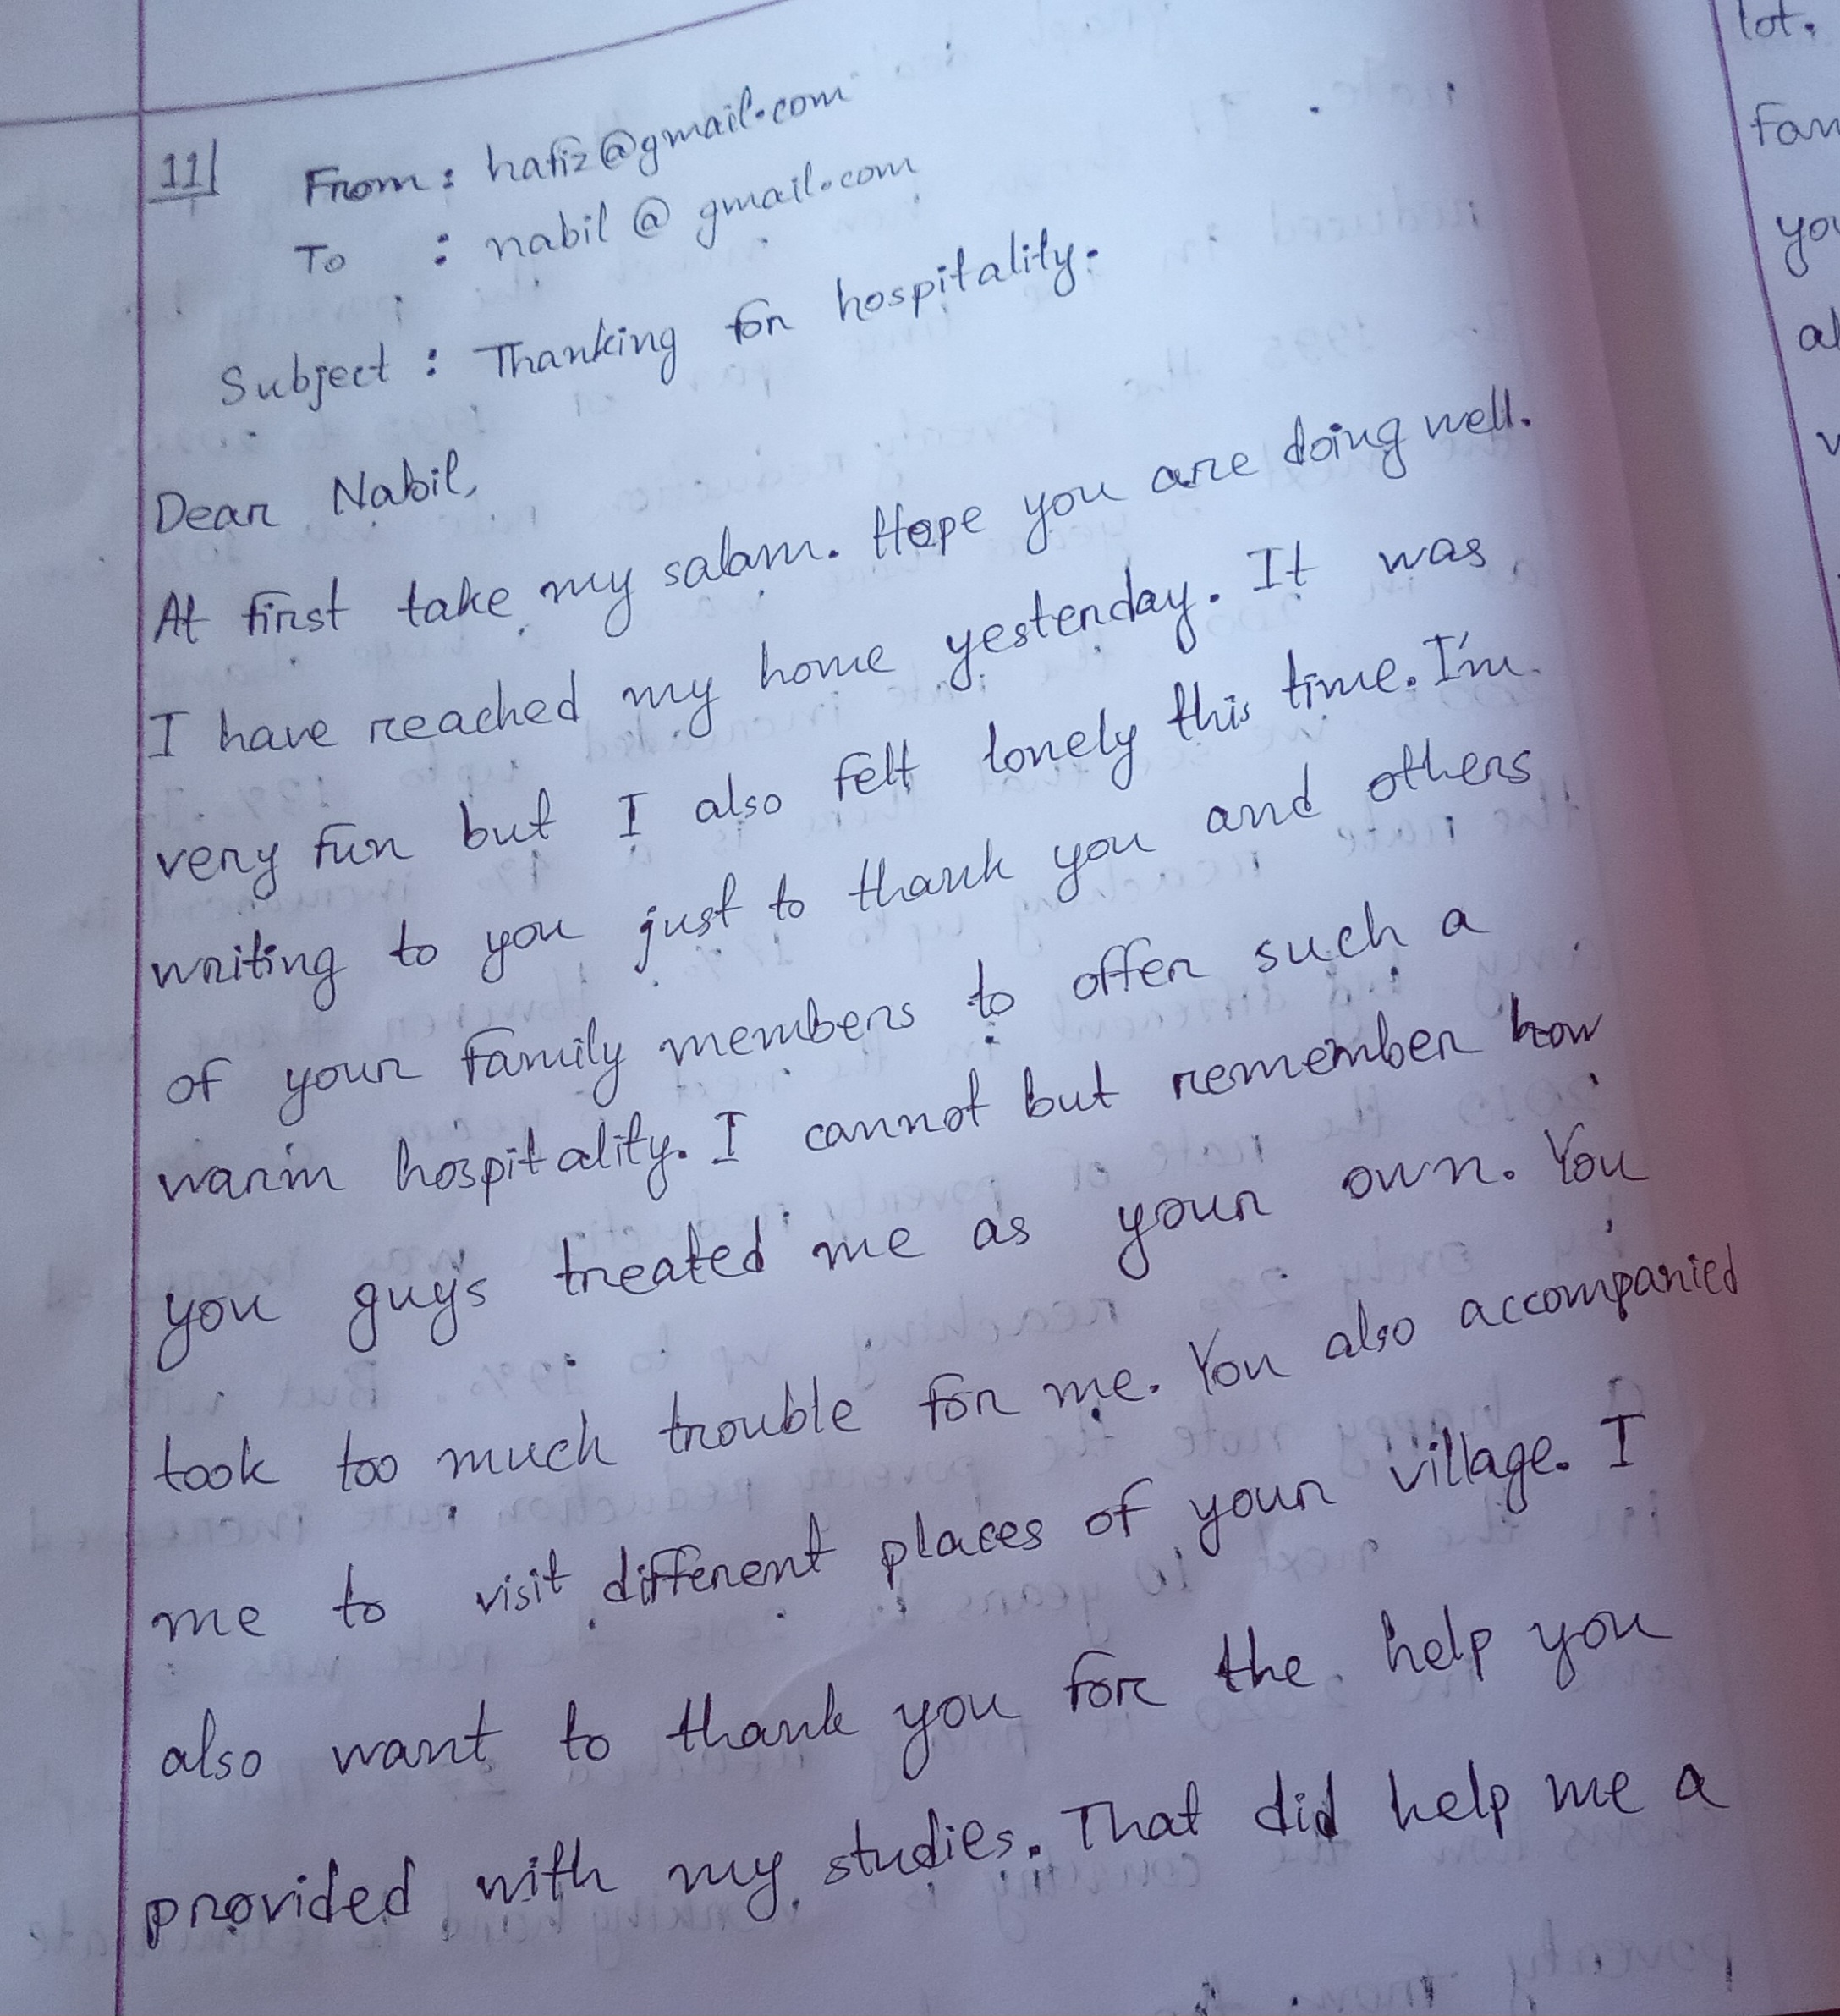 11
From : hafiz@gmail.com
To : nabil @ gmail.com
Subject : Thanking for hospitality.
Dear Nabil,
At first take my salam. Hope you are doing well.
I have reached my home yesterday. It was
very fun but I also felt lonely this time. I'm
writing to you just to thank you and others
of your family members to offer such a
warm hospitality. I cannot but remember how
you guys treated me as your own. You
took too much trouble for me. You also accompanied
me to visit different places of your village. I
also want to thank you for the help you
provided with my studies. That did help me a
lot.